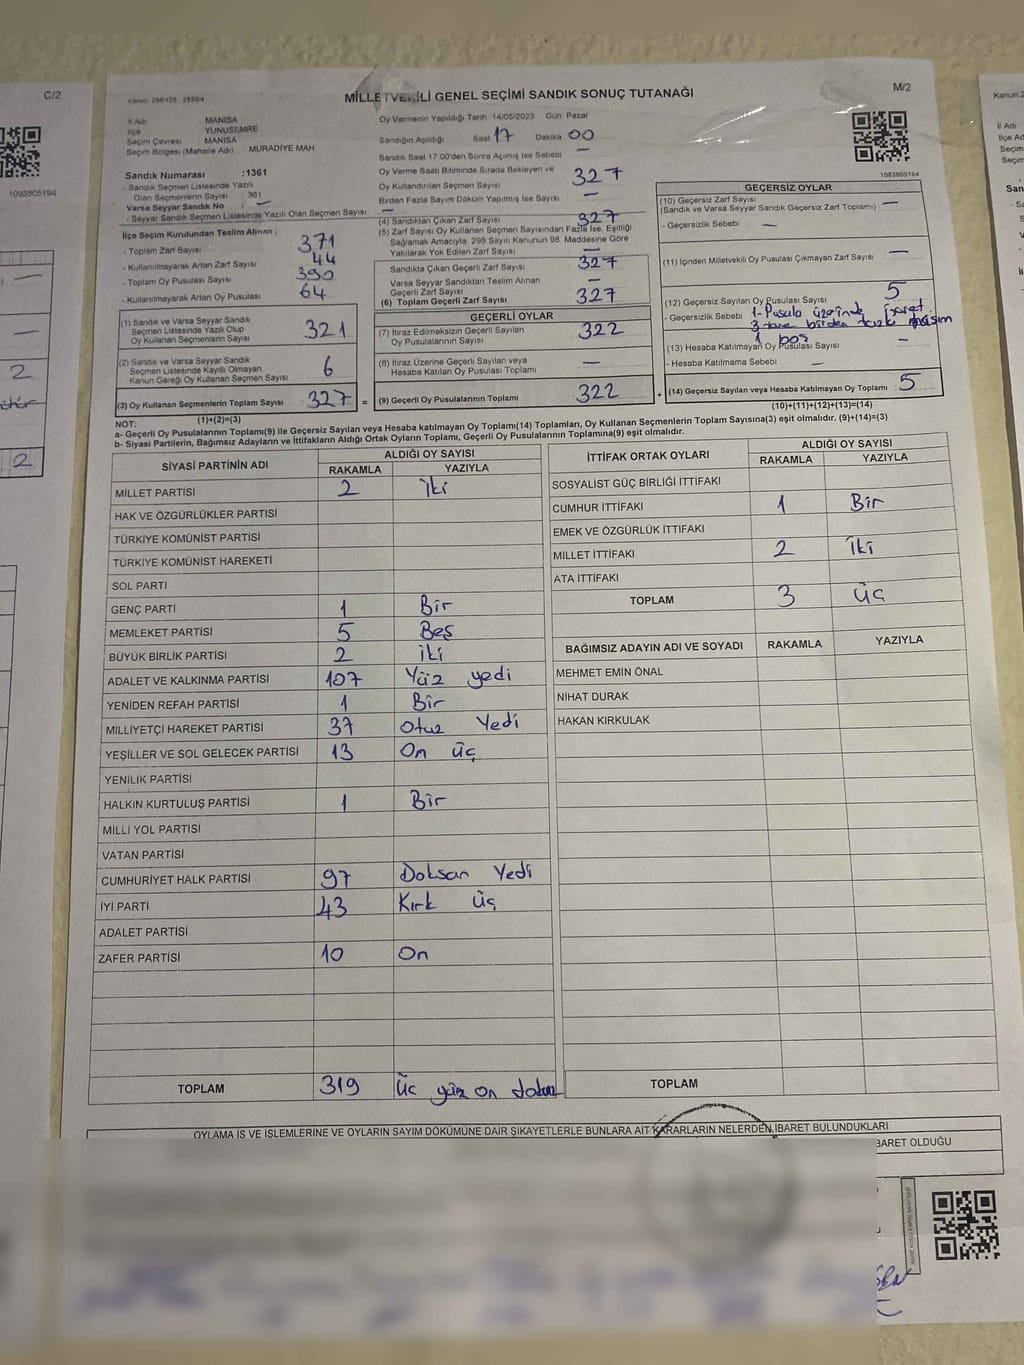 C/2
1093805194
2
2
Kanun: 298/105 , 2839/4
MİLLETVEKİLİ GENEL SEÇİMİ SANDIK SONUÇ TUTANAĞI
M/2
İl Adı MANİSA
İlçe YUNUSEMRE
Seçim Çevresi : MANİSA
Seçim Bölgesi (Mahalle Adı) : MURADİYE MAH
Sandık Numarası :1361
- Sandık Seçmen Listesinde Yazılı
Olan Seçmenlerin Sayısı : 361
Varsa Seyyar Sandık No : —
- Seyyar Sandık Seçmen Listesinde Yazılı Olan Seçmen Sayısı —
İlçe Seçim Kurulundan Teslim Alınan ;
- Toplam Zarf Sayısı : 371
- Kullanılmayarak Artan Zarf Sayısı : 44
- Toplam Oy Pusulası Sayısı : 390
- Kullanılmayarak Artan Oy Pusulası 64
(1) Sandık ve Varsa Seyyar Sandık
Seçmen Listesinde Yazılı Olup
Oy Kullanan Seçmen Sayısı 321
(2) Sandık ve Varsa Seyyar Sandık
Seçmen Listesinde Kayıtlı Olmayan
Kanun Gereği Oy Kullanan Seçmen Sayısı 6
(3) Oy Kullanan Seçmenlerin Toplam Sayısı 327 =
(1)+(2)=(3)
Oy Vermenin Yapıldığı Tarih :14/05/2023 Gün: Pazar
Sandığın Açıldığı Saat 17 Dakika 00
Sandık Saat 17:00'den Sonra Açılmış İse Sebebi —
Oy Verme Saati Bitiminde Sırada Bekleyen ve
Oy Kullandırılan Seçmen Sayısı 327
Birden Fazla Sayım Döküm Yapılmış İse Sayısı —
(4) Sandıktan Çıkan Zarf Sayısı 327
(5) Zarf Sayısı Oy Kullanan Seçmen Sayısından Fazla İse, Eşitliği
Sağlamak Amacıyla; 298 Sayılı Kanunun 98. Maddesine Göre
Yakılarak Yok Edilen Zarf Sayısı
Sandıkta Çıkan Geçerli Zarf Sayısı 327
Varsa Seyyar Sandıktan Teslim Alınan
Geçerli Zarf Sayısı —
(6) Toplam Geçerli Zarf Sayısı 327
GEÇERLİ OYLAR
(7) İtiraz Edilmeksizin Geçerli Sayılan
Oy Pusulalarının Sayısı 322
(8) İtiraz Üzerine Geçerli Sayılan veya
Hesaba Katılan Oy Pusulası Toplamı —
(9) Geçerli Oy Pusulalarının Toplamı 322 +
1083805194
GEÇERSİZ OYLAR
(10) Geçersiz Zarf Sayısı
(Sandık ve Varsa Seyyar Sandık Geçersiz Zarf Toplamı) —
- Geçersizlik Sebebi —
(11) İçinden Milletvekili Oy Pusulası Çıkmayan Zarf Sayısı —
(12) Geçersiz Sayılan Oy Pusulası Sayısı 5
- Geçersizlik Sebebi 1- Pusula üzerinde işaret
3 tane birden fazla
1 boş
(13) Hesaba Katılmayan Oy Pusulası Sayısı —
- Hesaba Katılmama Sebebi —
(14) Geçersiz Sayılan veya Hesaba Katılmayan Oy Toplamı 5
(10)+(11)+(12)+(13)=(14)
NOT:
a- Geçerli Oy Pusulalarının Toplamı(9) ile Geçersiz Sayılan veya Hesaba katılmayan Oy Toplamı(14) Toplamları, Oy Kullanan Seçmenlerin Toplam Sayısına(3) eşit olmalıdır. (9)+(14)=(3)
b- Siyasi Partilerin, Bağımsız Adayların ve İttifakların Aldığı Ortak Oyların Toplamı, Geçerli Oy Pusulalarının Toplamına(9) eşit olmalıdır.
SİYASİ PARTİNİN ADI ALDIĞI OY SAYISI
RAKAMLA YAZIYLA
MİLLET PARTİSİ 2 İki
HAK VE ÖZGÜRLÜKLER PARTİSİ
TÜRKİYE KOMÜNİST PARTİSİ
TÜRKİYE KOMÜNİST HAREKETİ
SOL PARTİ
GENÇ PARTİ 1 Bir
MEMLEKET PARTİSİ 5 Beş
BÜYÜK BİRLİK PARTİSİ 2 iki
ADALET VE KALKINMA PARTİSİ 107 Yüz yedi
YENİDEN REFAH PARTİSİ 1 Bir
MİLLİYETÇİ HAREKET PARTİSİ 37 Otuz Yedi
YEŞİLLER VE SOL GELECEK PARTİSİ 13 On üç
YENİLİK PARTİSİ
HALKIN KURTULUŞ PARTİSİ 1 Bir
MİLLİ YOL PARTİSİ
VATAN PARTİSİ
CUMHURİYET HALK PARTİSİ 97 Doksan Yedi
İYİ PARTİ 43 Kırk üç
ADALET PARTİSİ
ZAFER PARTİSİ 10 On
TOPLAM 319 Üç yüz on dokuz
İTTİFAK ORTAK OYLARI ALDIĞI OY SAYISI
RAKAMLA YAZIYLA
SOSYALİST GÜÇ BİRLİĞİ İTTİFAKI
CUMHUR İTTİFAKI 1 Bir
EMEK VE ÖZGÜRLÜK İTTİFAKI
MİLLET İTTİFAKI 2 İki
ATA İTTİFAKI
TOPLAM 3 Üç
BAĞIMSIZ ADAYIN ADI VE SOYADI RAKAMLA YAZIYLA
MEHMET EMİN ÖNAL
NİHAT DURAK
HAKAN KIRKULAK
TOPLAM
OYLAMA İŞ VE İŞLEMLERİNE VE OYLARIN SAYIM DÖKÜMÜNE DAİR ŞİKAYETLERLE BUNLARA AİT KARARLARIN NELERDEN İBARET BULUNDUKLARI
BARET OLDUĞU
Kanun:2
İl Adı
İlçe Ad
Seçim
Seçim
San